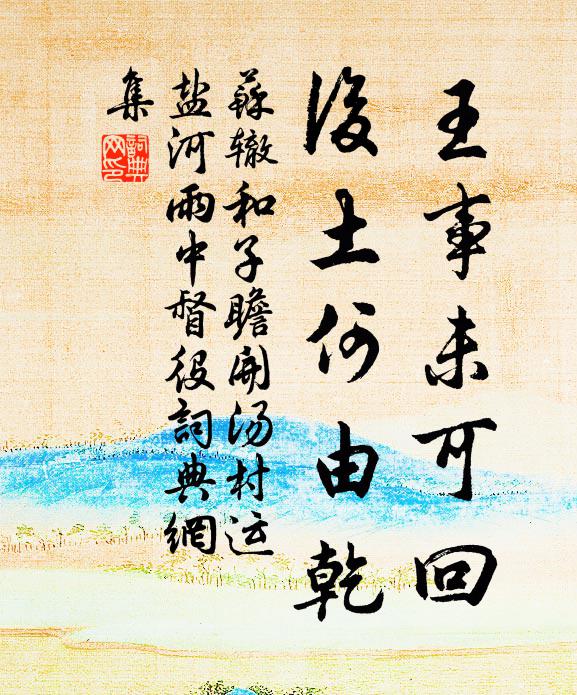 王事未可回
後土何由乾
蘇辙和子瞻開汤村运
盐河雨中督役詞典網
集
詞典網印